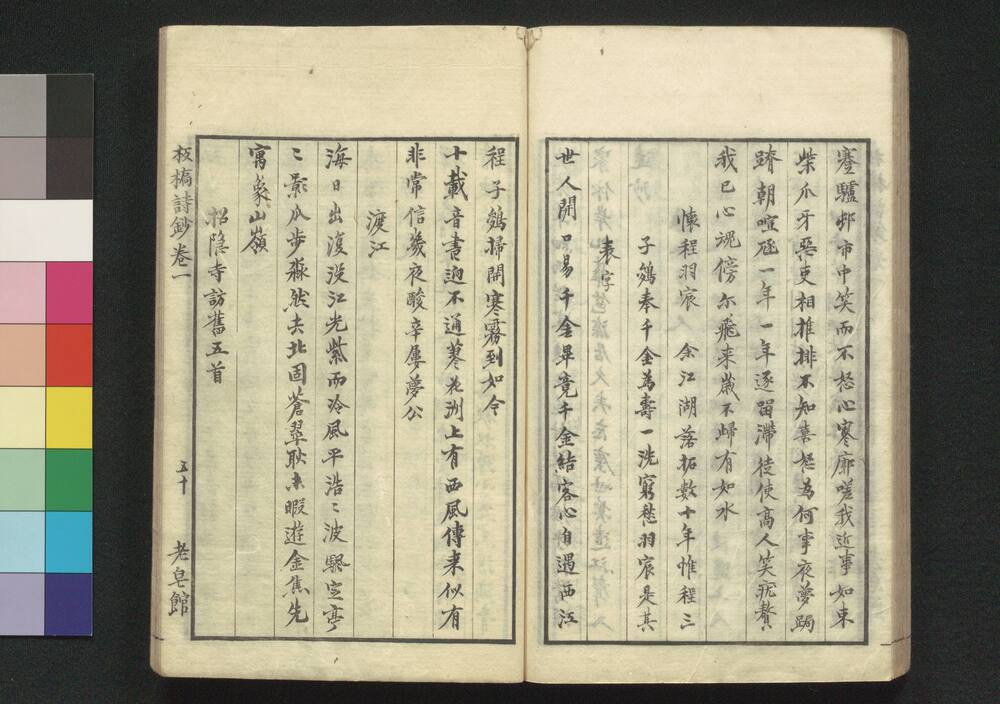 蹇驢邨市中笑而不怒心寥廓嗟我近事如束
柴爪牙惡吏相推排不知喜怒為何事夜夢跼
蹐朝喧豗一年一年逐留滯徒使高人笑疣贅
我已心魂傍尔飛来歲不歸有如水
懷程羽宸 余江湖落拓數十年惟程三
子鷃奉千金為壽一洗窮愁羽宸是其
表字
世人開口易千金畢竟千金結客心自遇西江
程子鷃掃開寒霧到如今
十載音書迥不通蓼花洲上有西風傳来似有
非常信幾夜酸辛屢夢公
渡江
海日出復没江光紫而冷風平浩〻波聚定亭
〻影瓜步森然去北固蒼翠耿未暇遊金焦先
寓象山嶺
招隠寺訪舊五首
板橋詩鈔卷二
五十
老皂館